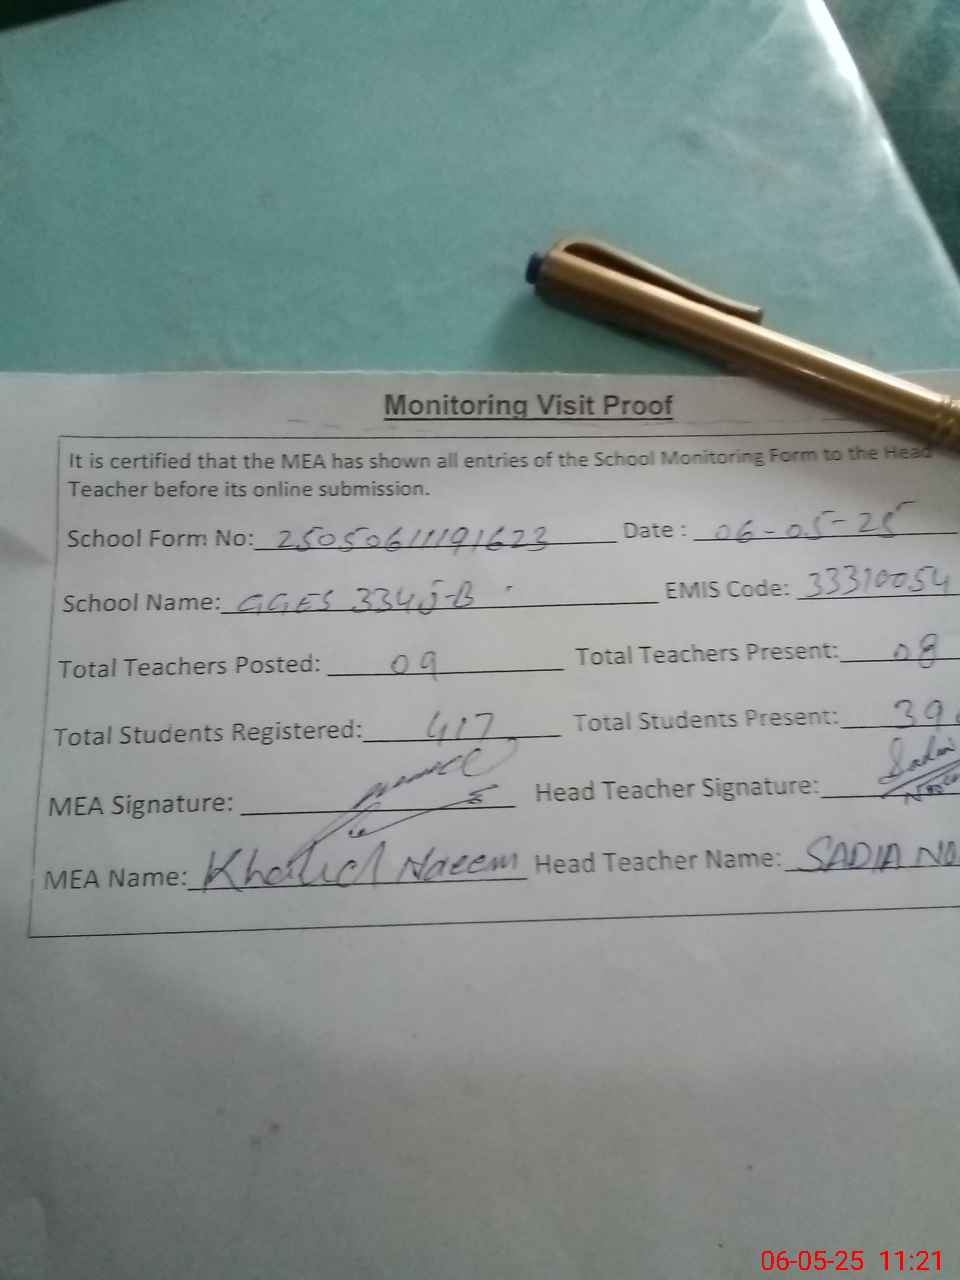 Monitoring Visit Proof
It is certified that the MEA has shown all entries of the School Monitoring Form to the Head
Teacher before its online submission.
School Form No: 25050611191623 Date : 06-05-25
School Name: GGES 334 J-B EMIS Code: 33310054
Total Teachers Posted: 09 Total Teachers Present: 08
Total Students Registered: 417 Total Students Present: 39
MEA Signature: Head Teacher Signature: Sadia
MEA Name: Khalid Naeem Head Teacher Name: SADIA NO
06-05-25 11:21